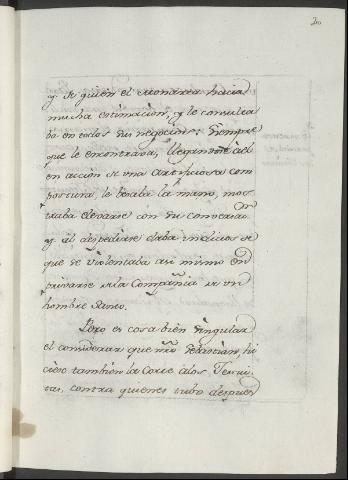 20
y de quien el Monarca hacia
mucha estimacion, y le consulta
ba en todos sus negocios: siempre
que le encontrava, llegandose a el
en accion de una artificiosa com
postura, le besaba la mano, mos
traba elevarse con su conversac.
y al despedirse daba indicios de
que se violentaba asi mismo en
privarse de la Compañia de un
hombre Santo.
Pero es cosa bien singular
el considerar que nrô Sebastian, hi
ciese tambien la Corte à los Jesui
tas, contra quienes tubo despues